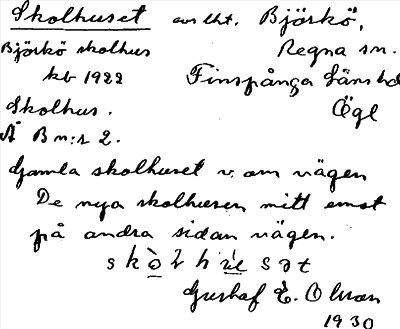 Skolhuset avs. lht. Björkö,
Björkö skolhus Regna sn.
kb 1922 Finspånga länshd
Skolhus. Ögl
Å B n:r 2.
Gamla skolhuset v. om vägen
De nya skolhusen mitt emot
på andra sidan vägen.
Gustaf E. Olsson
1930